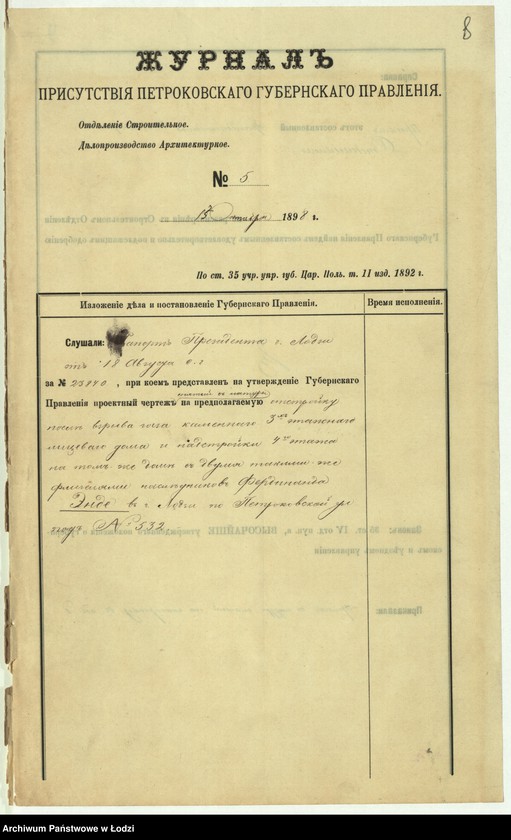 8
ЖУРНАЛЪ
ПРИСУТСТВІЯ ПЕТРОКОВСКАГО ГУБЕРНСКАГО ПРАВЛЕНІЯ.
Отдѣленіе Строительное.
Дѣлопроизводство Архитектурное.
№ 5
15 Октября 1898 г.
По ст. 35 учр. упр. губ. Цар. Поль. т. II изд. 1892 г.
Изложеніе дѣла и постановленіе Губернскаго Правленія.
Время исполненія.
Слушали: Рапортъ Президента г. Лодзи
отъ 18 Августа с. г.
за №, при коемъ представленъ на утвержденіе Губернскаго
снятый съ натуры
Правленія проектный чертежъ на предполагаемую отстройку
послѣ взрыва газа каменнаго 3хъ этажнаго
лицеваго дома и надстройки 4го этажа
на томъ же домѣ съ двумя такими же
флигелями наслѣдниковъ Фердинанда
Энде въ г. Лодзи по Петроковской ул.
подъ № 532
Archiwum Państwowe w Łodzi